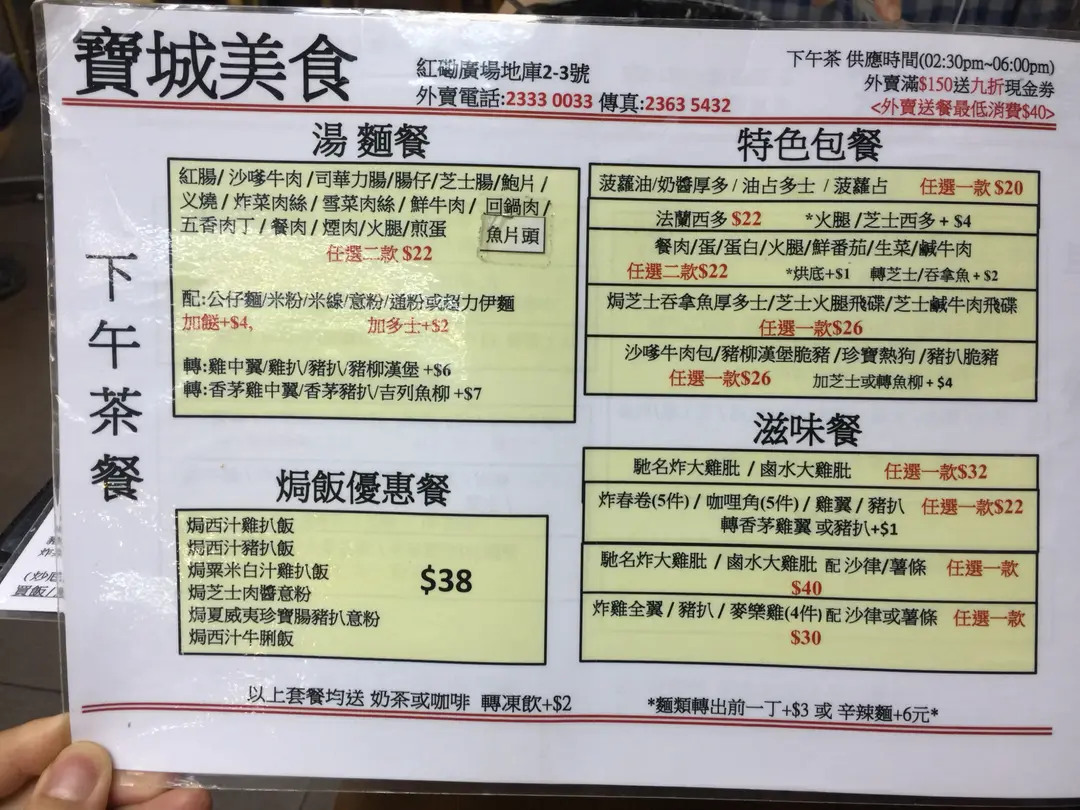 寶城美食
紅磡廣場地庫2-3號
外賣電話:2333 0033 傳真:2363 5432
下午茶 供應時間(02:30pm~06:00pm)
外賣滿$150送九折現金券
<外賣送餐最低消費$40>
下午茶餐
湯 麵餐
紅腸/ 沙嗲牛肉 /司華力腸/腸仔/芝士腸/鮑片 /
义燒 / 炸菜肉絲 / 雪菜肉絲 / 鮮牛肉 / 回鍋肉 /
五香肉丁 / 餐肉 / 煙肉/火腿/煎蛋
魚片頭
任選二款 $22
配:公仔麵/米粉/米線/意粉/通粉或超力伊麵
加餸+$4, 加多士+$2
轉:雞中翼/雞扒/豬扒/豬柳漢堡 +$6
轉:香茅雞中翼/香茅豬扒/吉列魚柳 +$7
焗飯優惠餐
焗西汁雞扒飯
焗西汁豬扒飯
焗粟米白汁雞扒飯
焗芝士肉醬意粉
焗夏威夷珍寶腸豬扒意粉
焗西汁牛脷飯
$38
特色包餐
菠蘿油/奶醬厚多 / 油占多士 / 菠蘿占 任選一款 $20
法蘭西多 $22 *火腿 /芝士西多 + $4
餐肉/蛋/蛋白/火腿/鮮番茄/生菜/鹹牛肉
任選二款$22 *烘底+$1 轉芝士/吞拿魚 + $2
焗芝士吞拿魚厚多士/芝士火腿飛碟/芝士鹹牛肉飛碟
任選一款$26
沙嗲牛肉包/豬柳漢堡脆豬 /珍寶熱狗 /豬扒脆豬
任選一款$26 加芝士或轉魚柳 + $4
滋味餐
馳名炸大雞肶 / 鹵水大雞肶 任選一款$32
炸春卷(5件) / 咖哩角(5件) / 雞翼 / 豬扒 任選一款$22
轉香茅雞翼 或豬扒+$1
馳名炸大雞肶 / 鹵水大雞肶 配 沙律/薯條 任選一款
$40
炸雞全翼 / 豬扒 / 麥樂雞(4件) 配 沙律或薯條 任選一款
$30
以上套餐均送 奶茶或咖啡 轉凍飲+$2
*麵類轉出前一丁+$3 或 辛辣麵+6元*